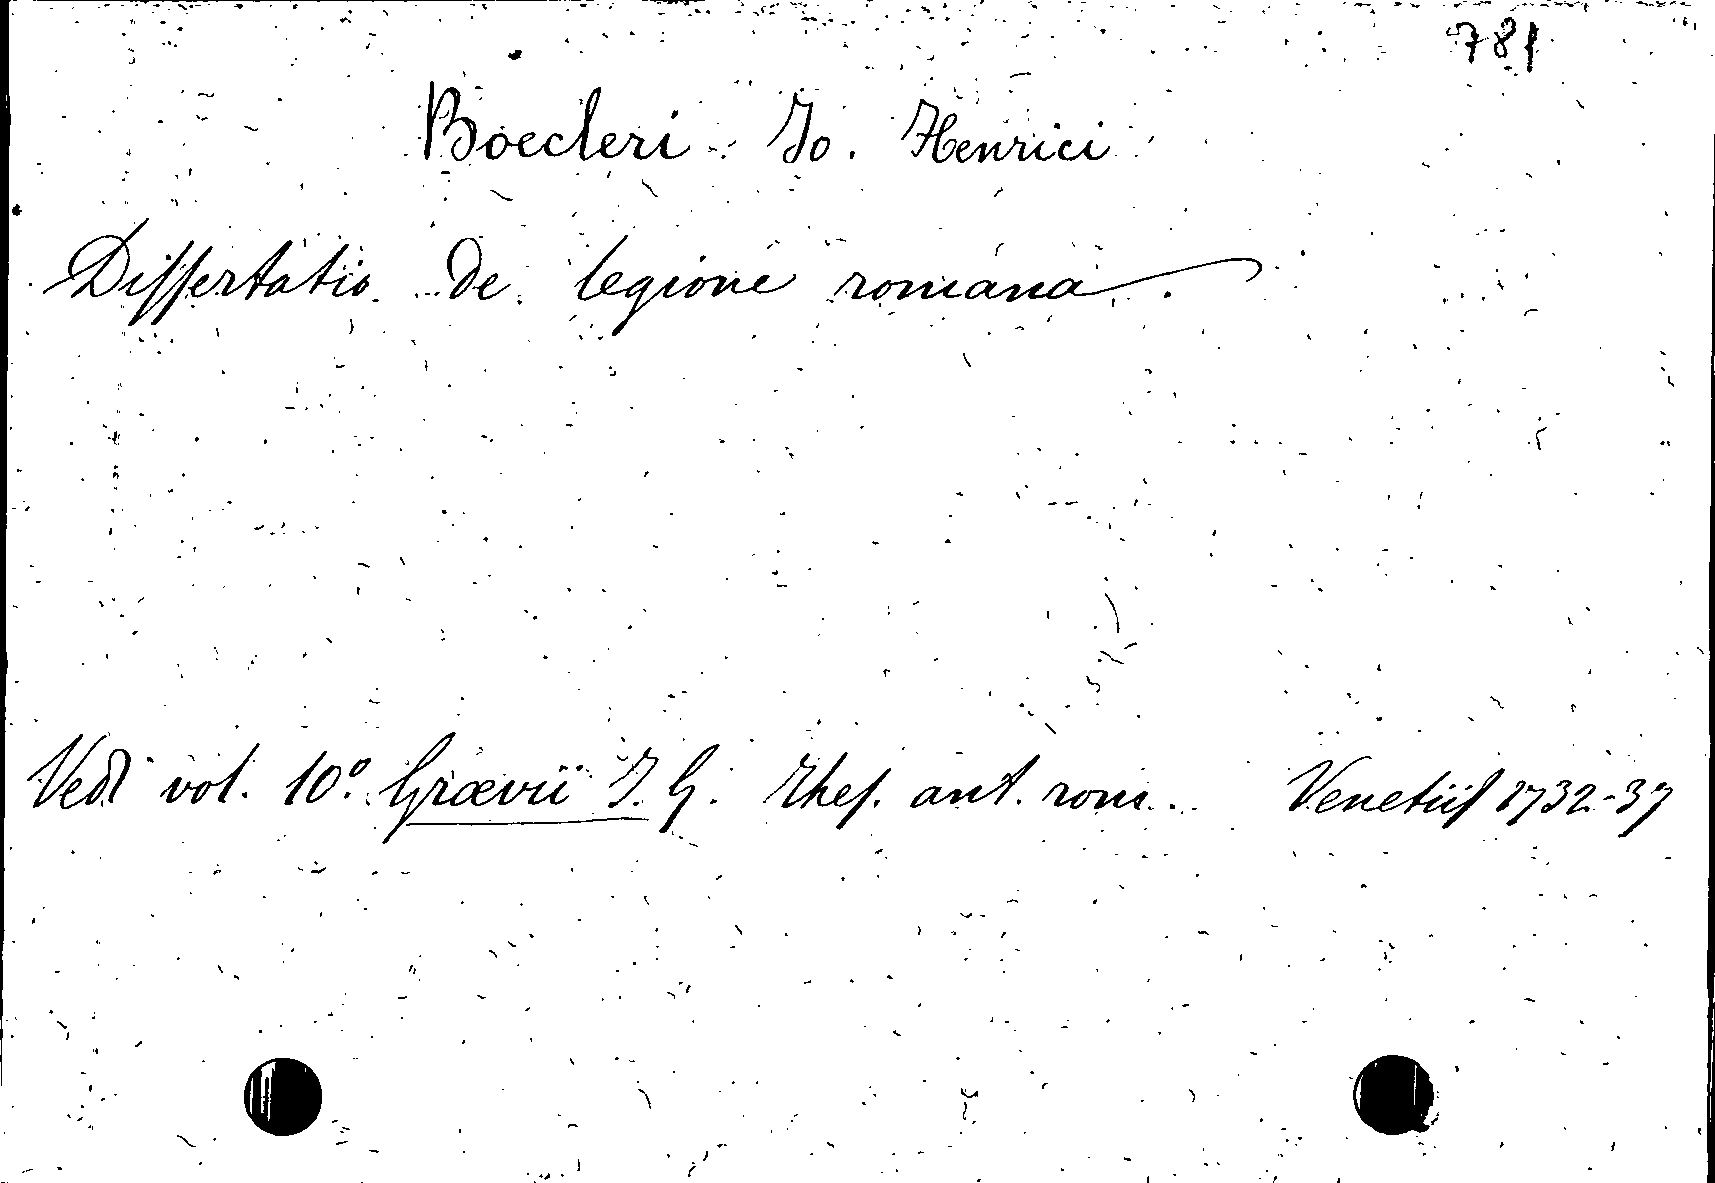 781
Boecleri Jo. Henrici
Dissertatio de legione romana.
Vedi vol. 10º. Grævii J. G. Thes. ant. rom. Venetiis 1732-37